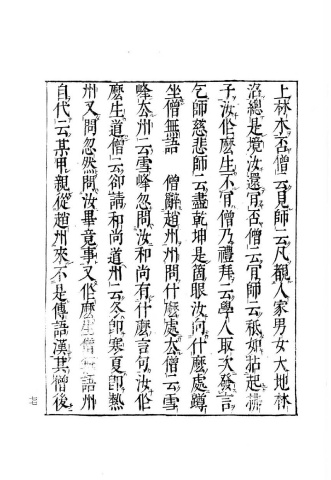 上林木否僧云見師云凡觀人家男女大地林
沼總是境汝還肎否僧云肎師云秖如拈起拂
子汝作麽生不肎僧乃禮拜云學人取次發言
乞師慈悲師云盡乾坤是箇眼汝向什麽處蹲
坐僧無語　僧辭趙州州問什麽處去僧云雪
峰去州云雪峰忽問汝和尚有什麽言句汝作
麽生道僧云卻請和尚道州云冬卽寒夏卽熱
州又問忽然問汝畢竟事又作麽生僧無語州
自代云某甲親從趙州來不是傳語漢其僧後